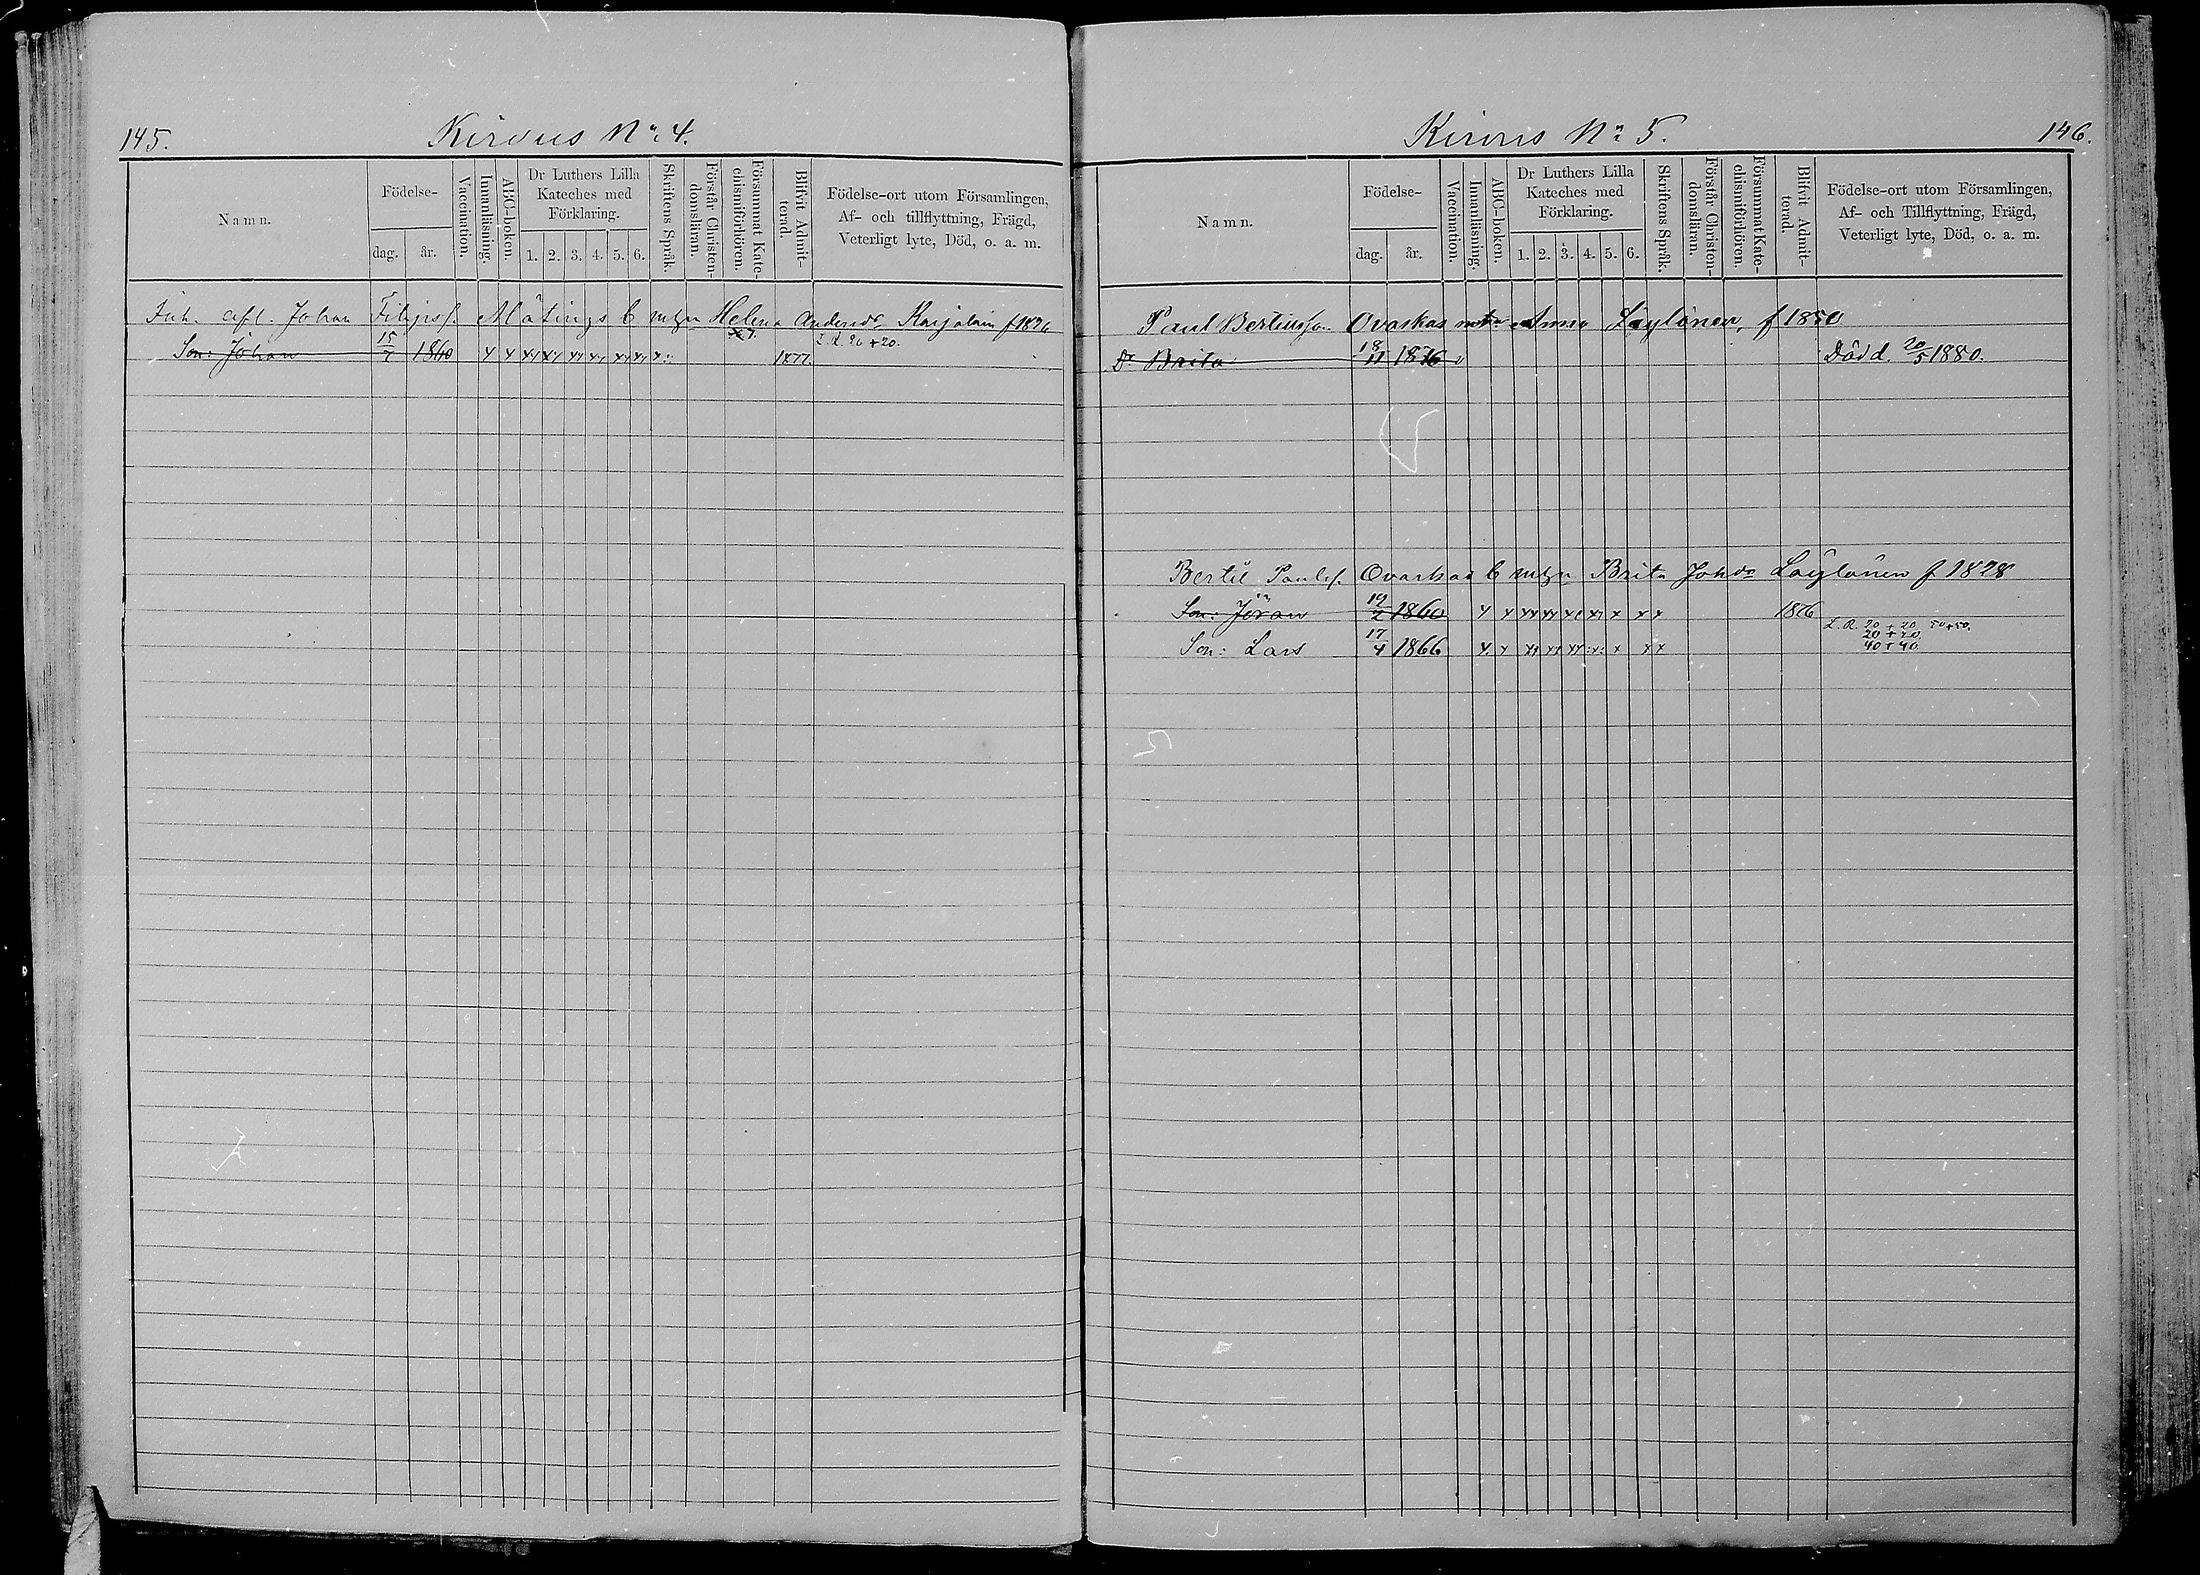 145.
Kirvus No 4.
Namn.
Födelse-
dag.
år.
Vaccination.
Innanläsning.
ABC-boken.
Dr Luthers Lilla
Kateches med
Förklaring.
1. 2. 3. 4. 5. 6.
Skriftens Språk.
Förstår Christen-
domsläran.
Försummat Kate-
chismiförhören.
Blifvit Admit-
terad.
Födelse-ort utom Församlingen,
Af- och tillflyttning, Frägd,
Veterligt lyte, Död, o. a. m.
Inh. afl. Johan Filipsf. Mätings b mtzn Helena Andersdr Karjalain f 1826
L. R. 20 + 20.
Son: Johan 15/7 1860 x x xx xx xx xx xx xx x 1877.
Kirvus No 5.
146.
Namn.
Födelse-
dag.
år.
Vaccination.
Innanläsning.
ABC-boken.
Dr Luthers Lilla
Kateches med
Förklaring.
1. 2. 3. 4. 5. 6.
Skriftens Språk.
Förstår Christen-
domsläran.
Försummat Kate-
chismiförhören.
Blifvit Admit-
terad.
Födelse-ort utom Församlingen,
Af- och Tillflyttning, Frägd,
Veterligt lyte, Död, o. a. m.
Paul Bertilsson Ovaskas Anna Löylönen, f 1850
Dr Brita 18/11 1876 Död d. 20/5 1880.
Bertil Paulsf. Ovaskas b mtzn Brita Johdr Löylönen f 1828
Son: Jöran 19/2 1860 x x xx xx xx xx x x x 1876
L. R. 20 + 20, 50+50.
20 + 20
Son: Lars 17/4 1866 x x xx xx xx x x x x 40 + 40.